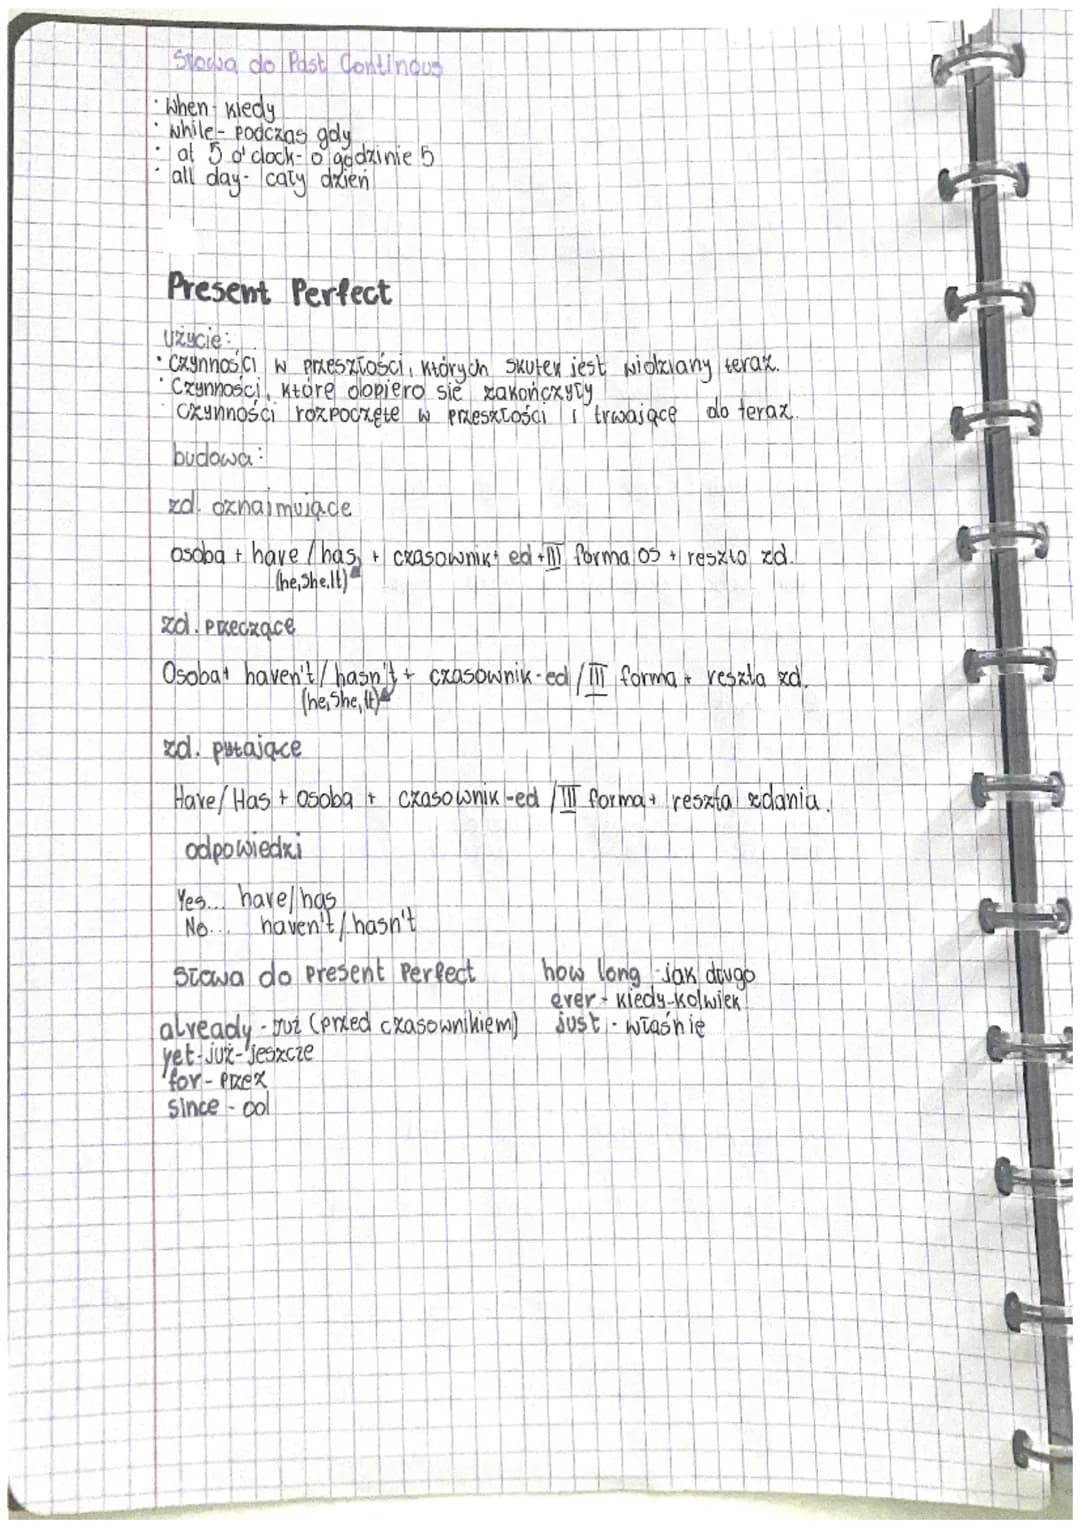 Słowa do Past Continous
· when - kiedy
· while - podczas gdy
· at 5 o'clock - o godzinie 5
· all day - cały dzień
Present Perfect
Użycie:
· Czynności w przeszłości, których skutek jest widziany teraz.
· Czynności, które dopiero się zakończyły
· czynności rozpoczęte w przeszłości i trwające do teraz.
budowa:
zd. oznajmujące
osoba + have / has + czasownik+ ed + III forma os + reszta zd.
(he, she, It)
zd. przeczące
Osoba+ haven't / hasn't + czasownik-ed / III forma + reszta zd.
(he, She, It)
zd. pytające
Have / Has + osoba + czasownik-ed / III forma + reszta zdania.
odpowiedzi
Yes... have/has
No... haven't / hasn't
Słowa do Present Perfect
already - już (przed czasownikiem)
yet - już - jeszcze
for - przez
since - od
how long - jak długo
ever - kiedy-kolwiek
just - właśnie